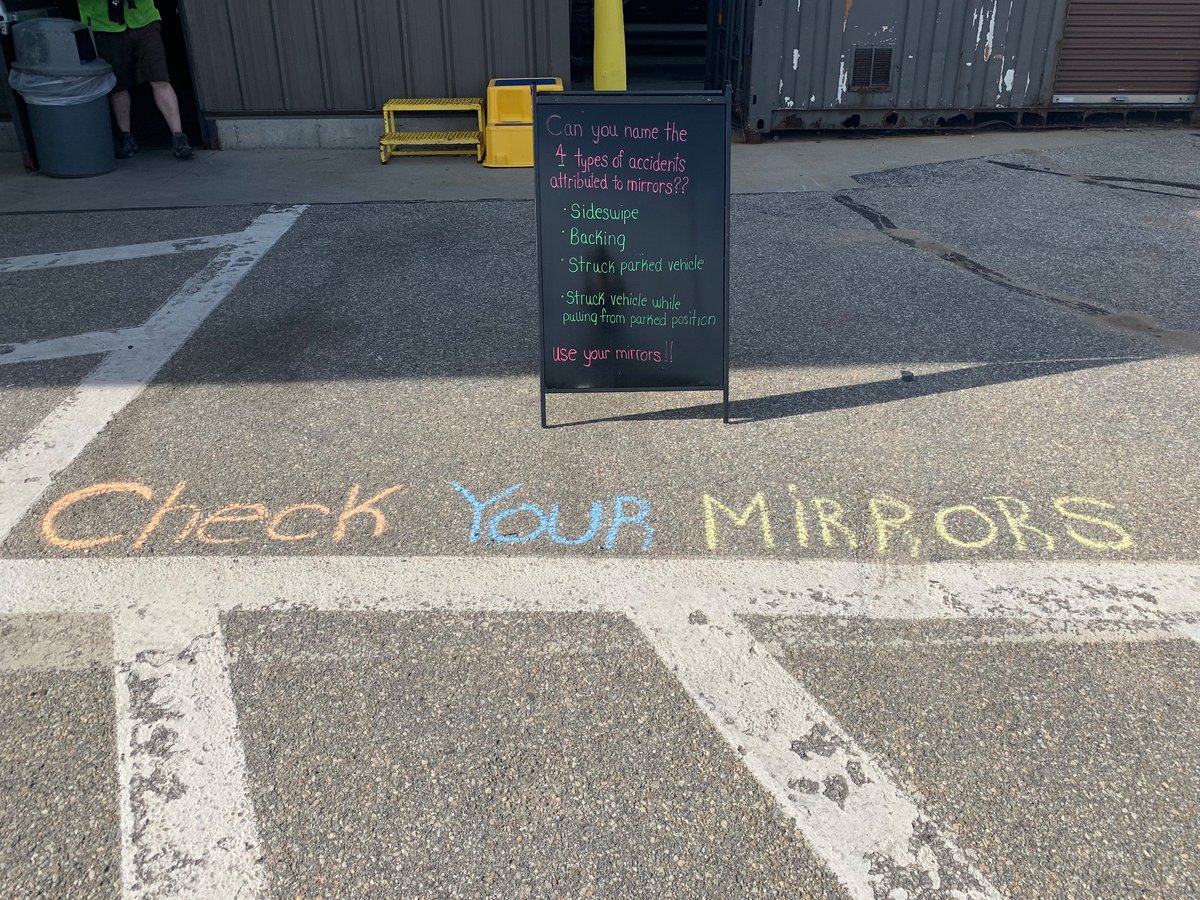 Can you name the
4 types of accidents
attributed to mirrors??
· Sideswipe
· Backing
· Struck parked vehicle
· Struck vehicle while
pulling from parked position
use your mirrors!!
Check YOUR MiRRORS